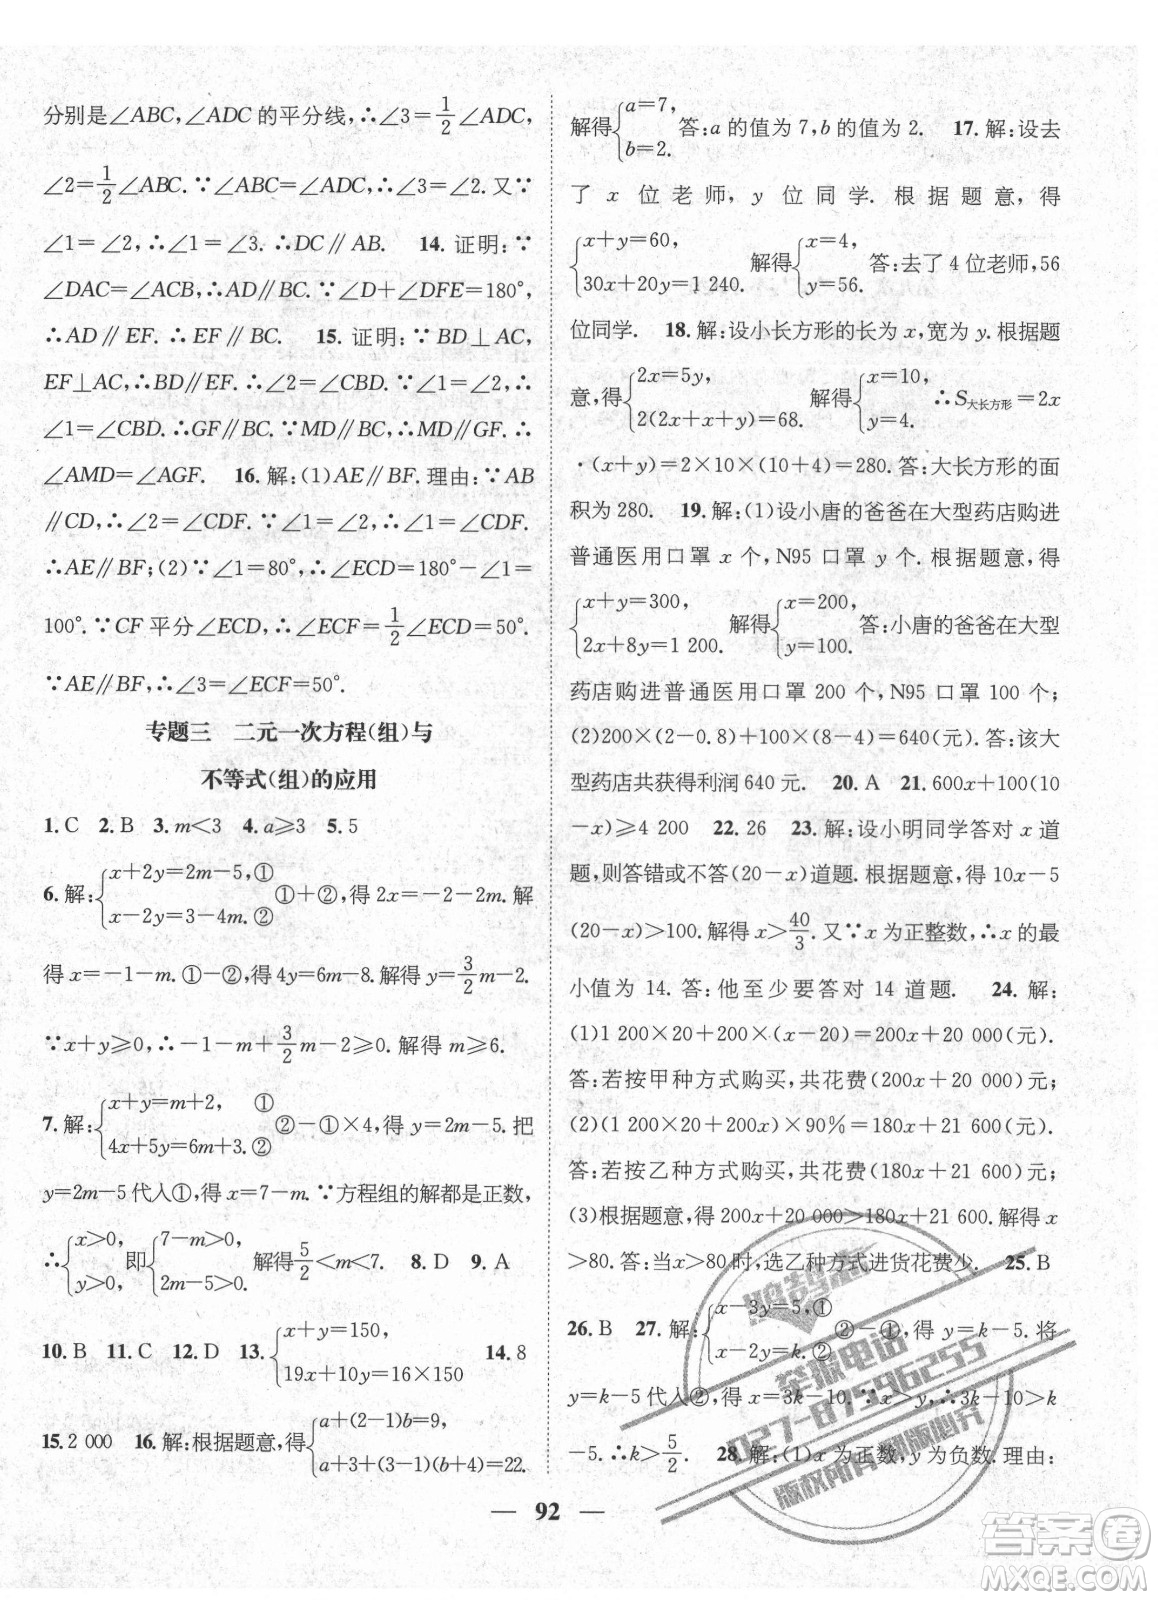 分别是∠ABC,∠ADC的平分线,∴∠3=1/2∠ADC,
∠2=1/2∠ABC.∵∠ABC=∠ADC,∴∠3=∠2.又∵
∠1=∠2,∴∠1=∠3.∴DC∥AB. 14. 证明:∵
∠DAC=∠ACB,∴AD∥BC.∵∠D+∠DFE=180°,
∴AD∥EF.∴EF∥BC. 15. 证明:∵BD⊥AC,
EF⊥AC,∴BD∥EF.∴∠2=∠CBD.∵∠1=∠2,∴
∠1=∠CBD.∴GF∥BC.∵MD∥BC,∴MD∥GF.∴
∠AMD=∠AGF. 16. 解:(1)AE∥BF.理由:∵AB
∥CD,∴∠2=∠CDF.∵∠1=∠2,∴∠1=∠CDF.
∴AE∥BF;(2)∵∠1=80°,∴∠ECD=180°-∠1=
100°.∵CF平分∠ECD,∴∠ECF=1/2∠ECD=50°.
∵AE∥BF,∴∠3=∠ECF=50°.
专题三 二元一次方程(组)与
不等式(组)的应用
1. C 2. B 3. m<3 4. a≥3 5. 5
6. 解:{x+2y=2m-5,① x-2y=3-4m.② ①+②,得2x=-2-2m.解
得x=-1-m.①-②,得4y=6m-8.解得y=3/2m-2.
∵x+y≥0,∴-1-m+3/2m-2≥0.解得m≥6.
7. 解:{x+y=m+2, ① 4x+5y=6m+3.② ②-①×4,得y=2m-5.把
y=2m-5代入①,得x=7-m.∵方程组的解都是正数,
∴{x>0, y>0, 即{7-m>0, 2m-5>0. 解得5/2<m<7. 8. D 9. A
10. B 11. C 12. D 13. {x+y=150, 19x+10y=16×150 14. 8
15. 2 000 16. 解:根据题意,得{a+(2-1)b=9, a+3+(3-1)(b+4)=22.
解得{a=7, b=2. 答:a的值为7,b的值为2. 17. 解:设去
了 x 位老师,y 位同学. 根据题意,得
{x+y=60, 30x+20y=1 240. 解得{x=4, y=56. 答:去了4位老师,56
位同学. 18. 解:设小长方形的长为x,宽为y.根据题
意,得{2x=5y, 2(2x+x+y)=68. 解得{x=10, y=4. ∴S大长方形=2x
·(x+y)=2×10×(10+4)=280.答:大长方形的面
积为280. 19. 解:(1)设小唐的爸爸在大型药店购进
普通医用口罩 x 个,N95 口罩 y 个. 根据题意,得
{x+y=300, 2x+8y=1 200. 解得{x=200, y=100. 答:小唐的爸爸在大型
药店购进普通医用口罩 200 个,N95 口罩 100 个;
(2)200×(2-0.8)+100×(8-4)=640(元).答:该大
型药店共获得利润640元. 20. A 21. 600x+100(10
-x)≥4 200 22. 26 23. 解:设小明同学答对 x 道
题,则答错或不答(20-x)道题.根据题意,得10x-5
(20-x)>100.解得x>40/3.又∵x为正整数,∴x的最
小值为 14. 答:他至少要答对 14 道题. 24. 解:
(1)1 200×20+200×(x-20)=200x+20 000(元).
答:若按甲种方式购买,共花费(200x+20 000)元;
(2)(1 200×20+200x)×90%=180x+21 600(元).
答:若按乙种方式购买,共花费(180x+21 600)元;
(3)根据题意,得200x+20 000>180x+21 600.解得x
>80.答:当x>80时,选乙种方式进货花费少. 25. B
26. B 27. 解:{x-3y=5,① x-2y=k.② ②-①,得y=k-5.将
y=k-5代入②,得x=3k-10.∵x>y,∴3k-10>k
-5.∴k>5/2. 28. 解:(1)x为正数,y为负数.理由:
— 92 —
举报电话
027-87596255
版权所有 翻版必究
答案卷
MXQE.COM